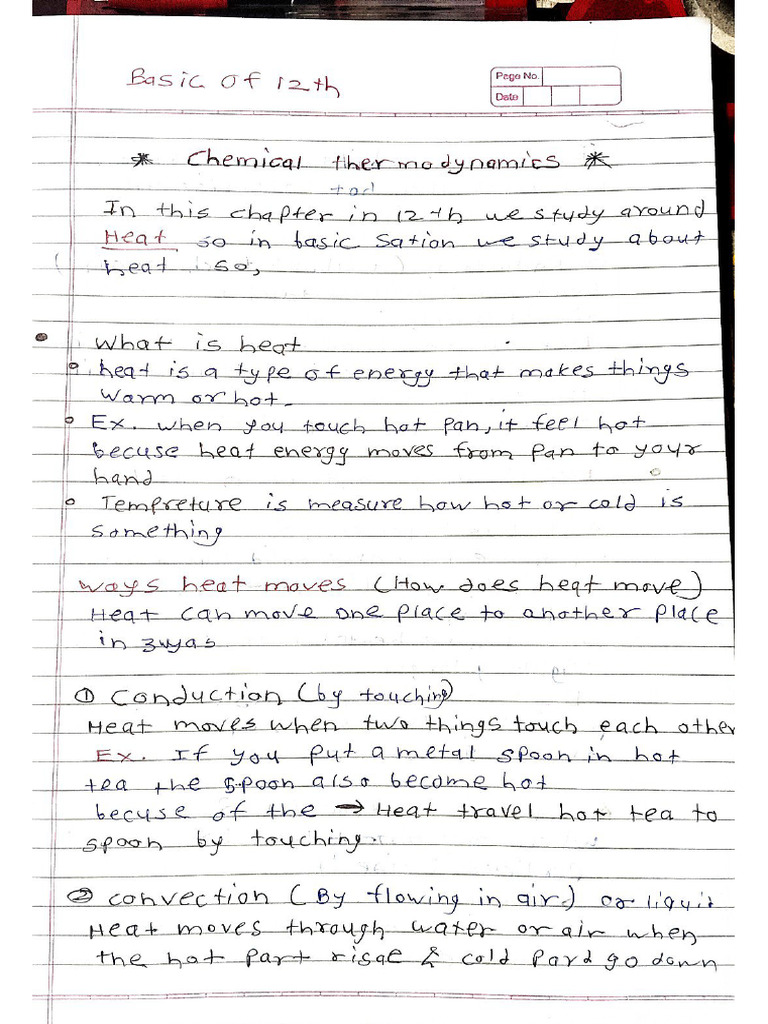 Basic of 12th
Page No.
Date
* Chemical thermodynamics *
In this chapter in 12th we study around
Heat so in basic Sation we study about
heat so,
What is heat
heat is a type of energy that makes things
warm or hot.
Ex. when you touch hot pan, it feel hot
becuse heat energy moves from pan to your
hand
Tempreture is measure how hot or cold is
something
ways heat moves (How does heat move)
Heat can move one place to another place
in 3wyas
① conduction (by touching)
Heat moves when two things touch each other
Ex. If you put a metal spoon in hot
tea the spoon also become hot
becuse of the → Heat travel hot tea to
spoon by touching.
② convection (By flowing in air) or liquit
Heat moves through water or air when
the hot part risae & cold pard go down